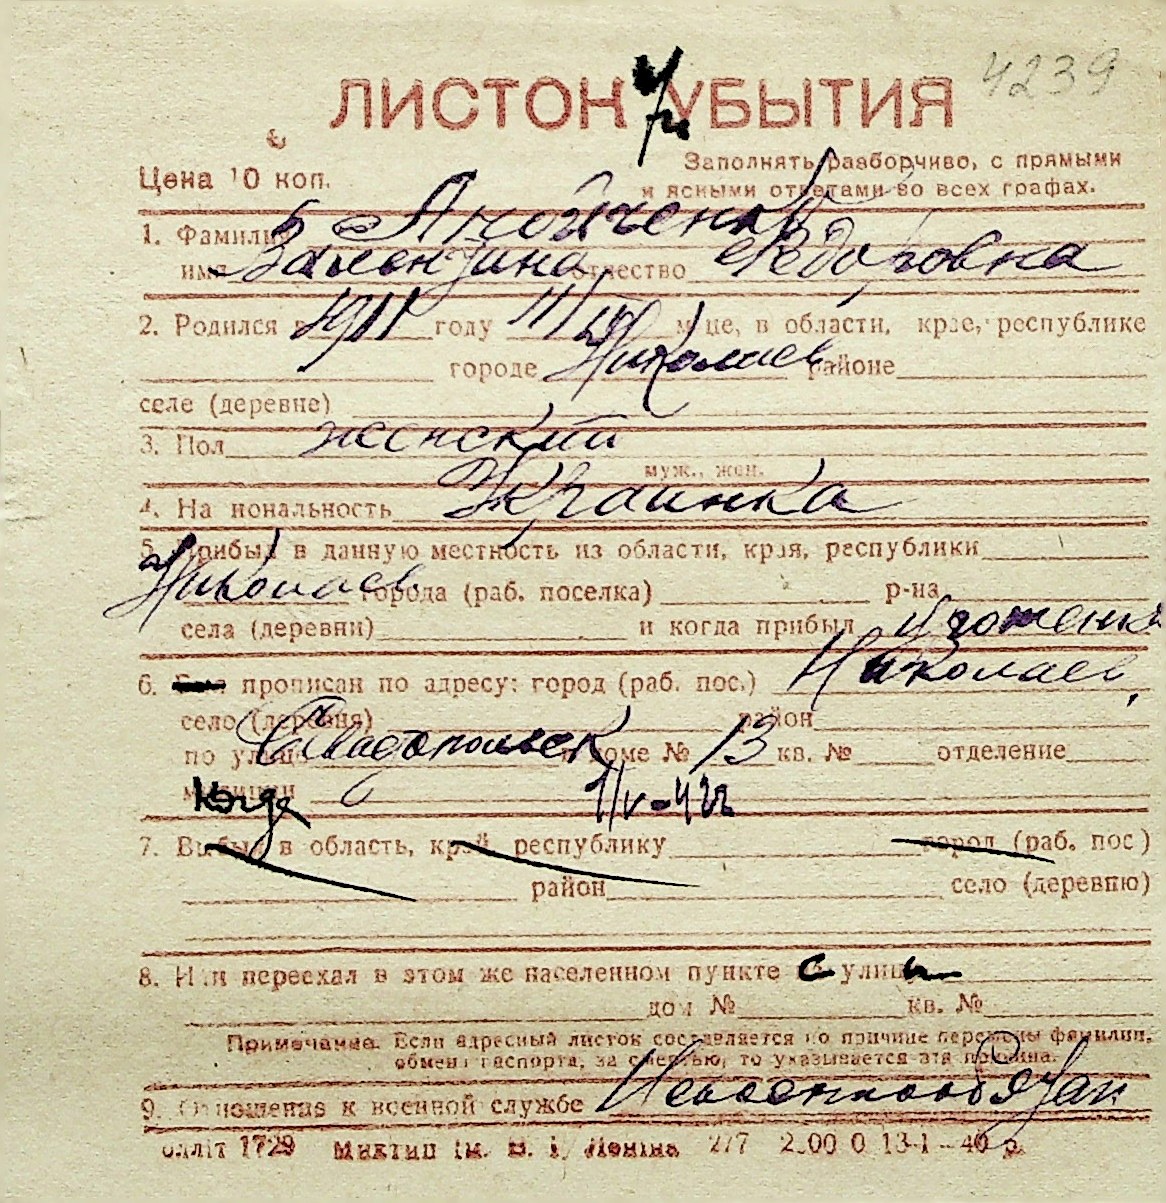 4239
ЛИСТОК УБЫТИЯ
Цена 10 коп.
Заполнять разборчиво, с прямыми
и ясными ответами во всех графах.
1. Фамилия
имя Валентина отчество Федоровна
2. Родился в 1911 году м-це, в области, крае, республике
городе Николаев районе
селе (деревне)
3. Пол женский
муж., жен.
4. Национальность Украинка
5. Прибыл в данную местность из области, края, республики
Николаев города (раб. поселка) р-на
села (деревни) и когда прибыл уроженка
6. прописан по адресу: город (раб. пос.) Николаев,
село (деревня) район
по улице доме № 13 кв. № отделение
милиции
когда 1/V-42г
7. Выбыл в область, край, республику город (раб. пос)
район село (деревню)
8. Или переехал в этом же населенном пункте с улицы
дом № кв. №
Примечание. Если адресный листок составляется по причине перемены фамилии,
обмена паспорта, за смертью, то указывается эта причина.
9. Отношения к военной службе Невоеннообязан
Облліт 1729 Миктип ім. В. І. Леніна 277 2.00 0 13-1-40 р.